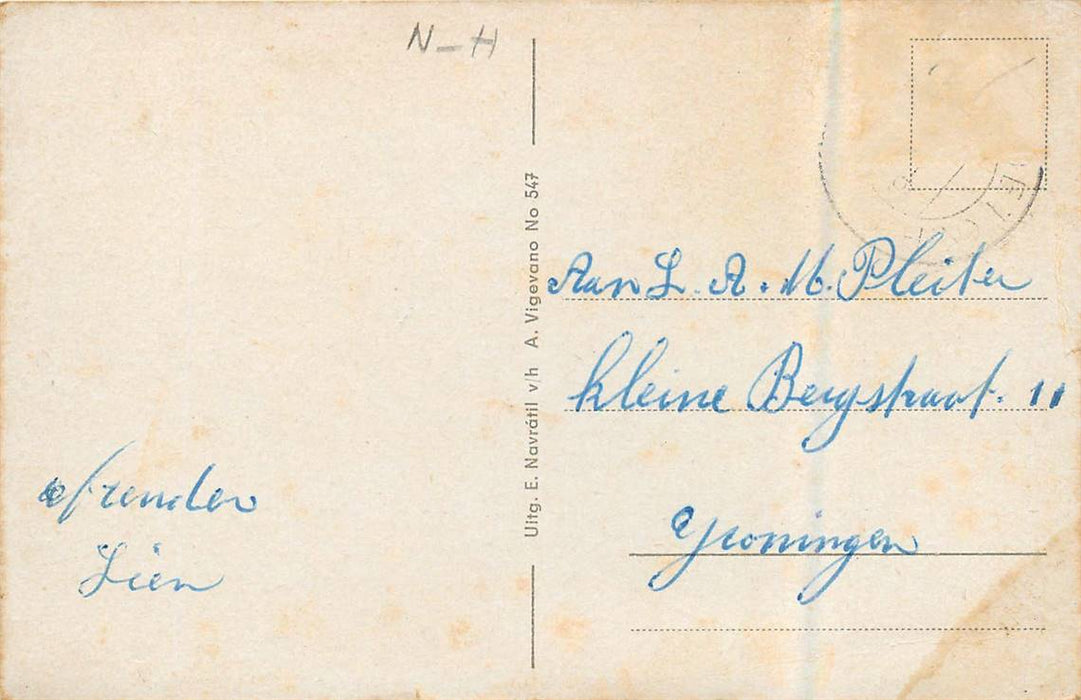 N-H
afzender
Lien
Uitg. E. Navrátil v/h A. Vigevano No 547
Aan L. A. M. Pleiter
kleine Bergstraat. 11
Groningen